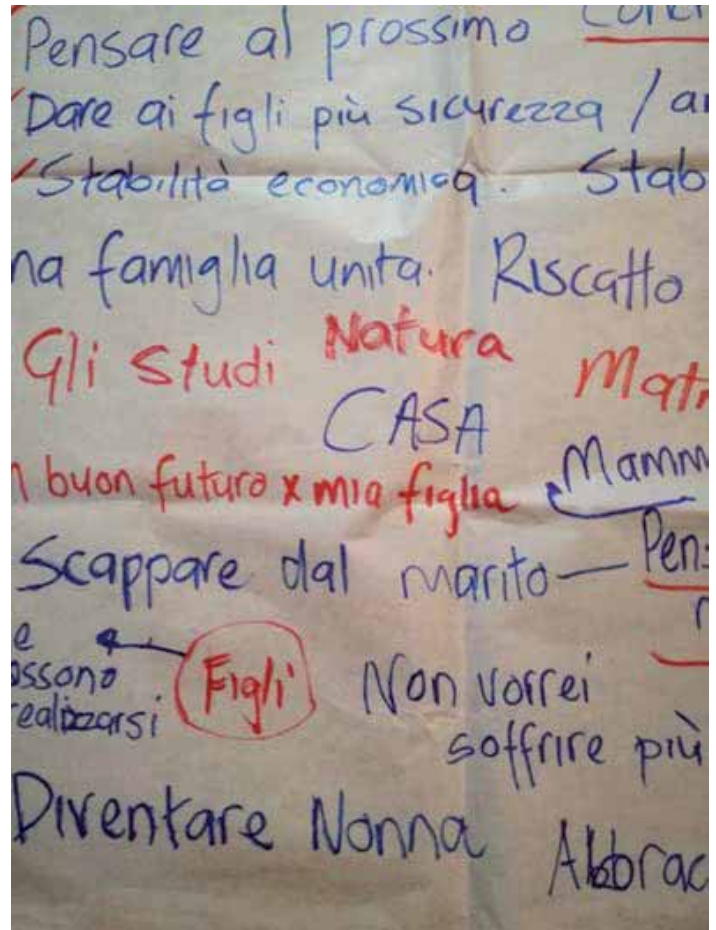 Pensare al prossimo
Dare ai figli più sicurezza /
Stabilità economica. Stab
na famiglia unita. Riscatto
Gli studi Natura Mat
CASA
n buon futuro x mia figlia Mamm
Scappare dal marito — Pens
e
ossono
ealizzarsi
Figli
Non vorrei
soffrire più
Diventare Nonna Abbrac